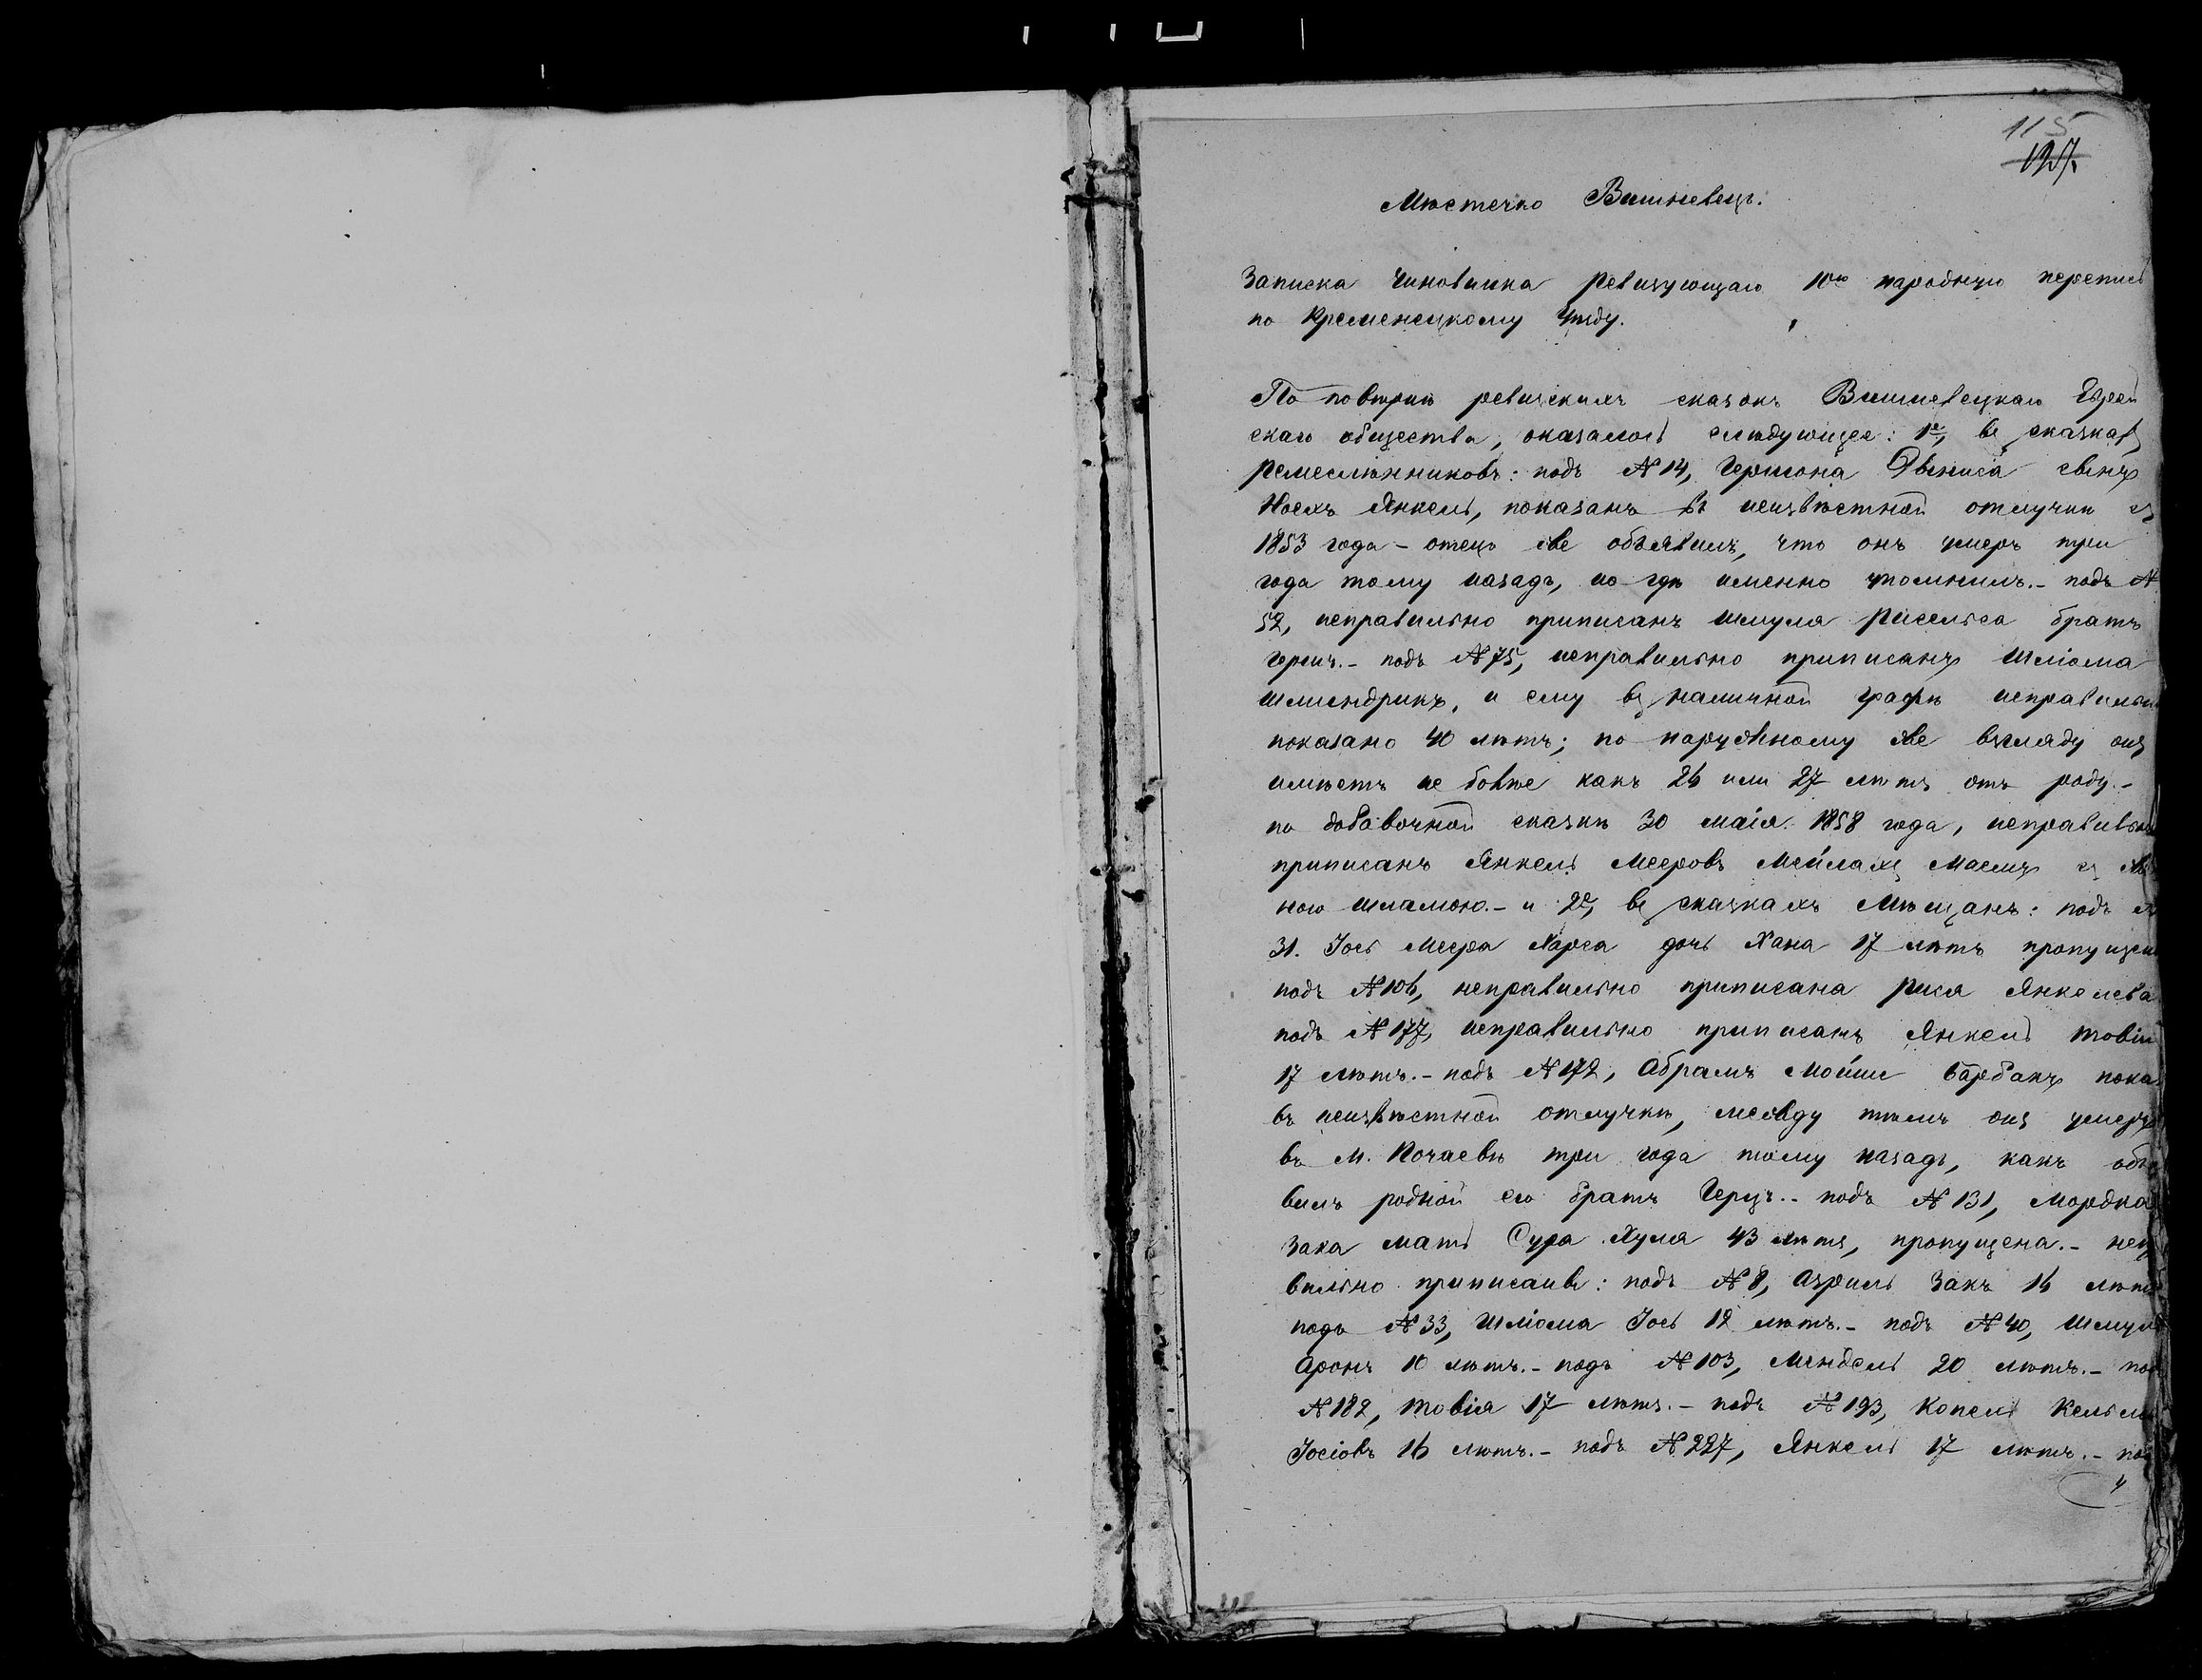 115
127.
Мѣстечко Вишневец.
Записка Чиновника ревизующаго 10ю народную перепись
по Кременецкому Уѣзду.
По повѣркѣ ревизскихъ сказокъ Вишневецкаго Еврей
скаго общества, оказалось слѣдующее: 1е, въ сказкахъ
ремесленниковъ: подъ № 14, Гершона сынъ
Янкель, показанъ въ неизвѣстной отлучкѣ съ
1853 года – отецъ же объявилъ, что онъ умеръ три
года тому назадъ, но гдѣ именно – подъ №
52, неправильно приписанъ Шмуля братъ
Гершъ. – подъ № 75, неправильно приписанъ Шліома
Шмендрикъ, и ему въ наличной графѣ неправильно
показано 40 лѣтъ; по наружному же взгляду онъ
имѣетъ не болѣе какъ 26 или 27 лѣтъ отъ роду. –
по добавочной сказкѣ 30 маія 1858 года, неправильно
приписанъ Янкель Мееровъ Мейлахъ съ
ною – и 2е, въ сказкахъ Мѣщанъ: подъ №
31. Іось Меера дочь Хана 17 лѣтъ
подъ № 106, неправильно приписана Янкелева
подъ № 177, неправильно приписанъ Янкель
17 лѣтъ. – подъ № 172, Абрамъ Мойше Барбакъ
въ неизвѣстной отлучкѣ, между тѣмъ онъ умеръ
въ м. Почаевѣ три года тому назадъ, какъ
вилъ родной его братъ Герцъ. – подъ № 131, Мордка
Зака мать Сура Хуля 43 лѣтъ, пропущена. –
вильно приписаны: подъ № 8, Азриль Закъ 16 лѣтъ
подъ № 33, Шліома Іось 12 лѣтъ. – подъ № 40, Шмуль
Аронъ 10 лѣтъ. – подъ № 103, Мендель 20 лѣтъ. – подъ
№ 182, Товія 17 лѣтъ. – подъ № 193, Копель
Іосіовъ 16 лѣтъ. – подъ № 227, Янкель 17 лѣтъ. –